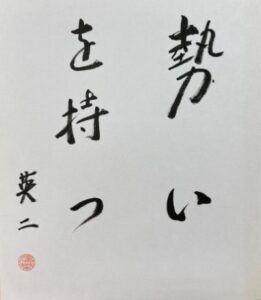 勢い
を持つ
英二